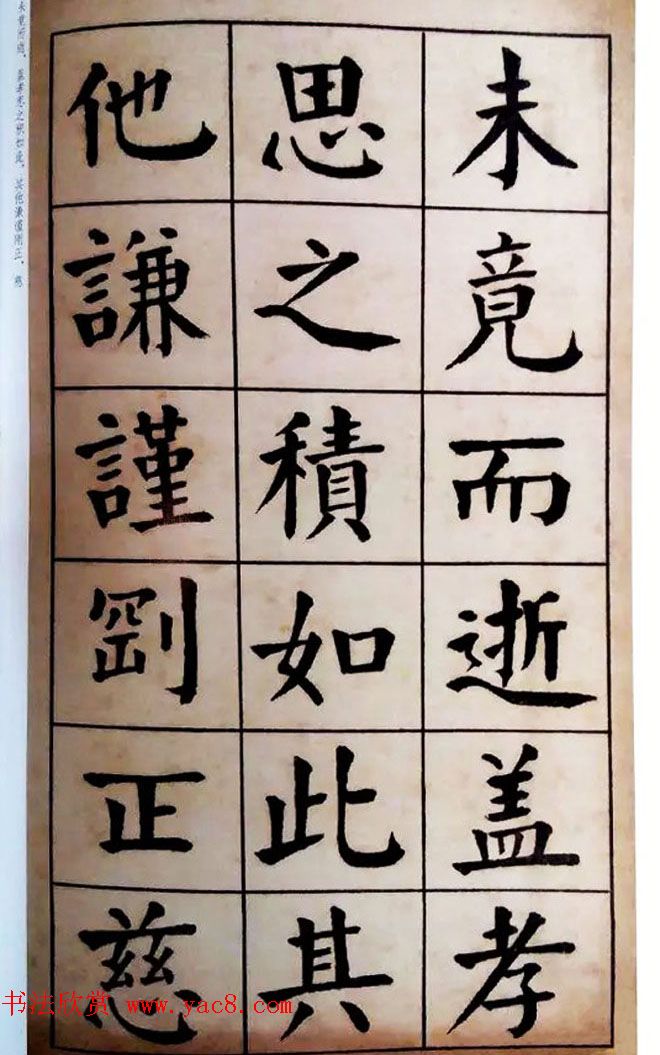 未竟而逝盖孝
思之積如此其
他謙謹剛正慈
未竟而逝，盖孝思之积如此。其他谦谨刚正，慈
书法欣赏 www.yac8.com